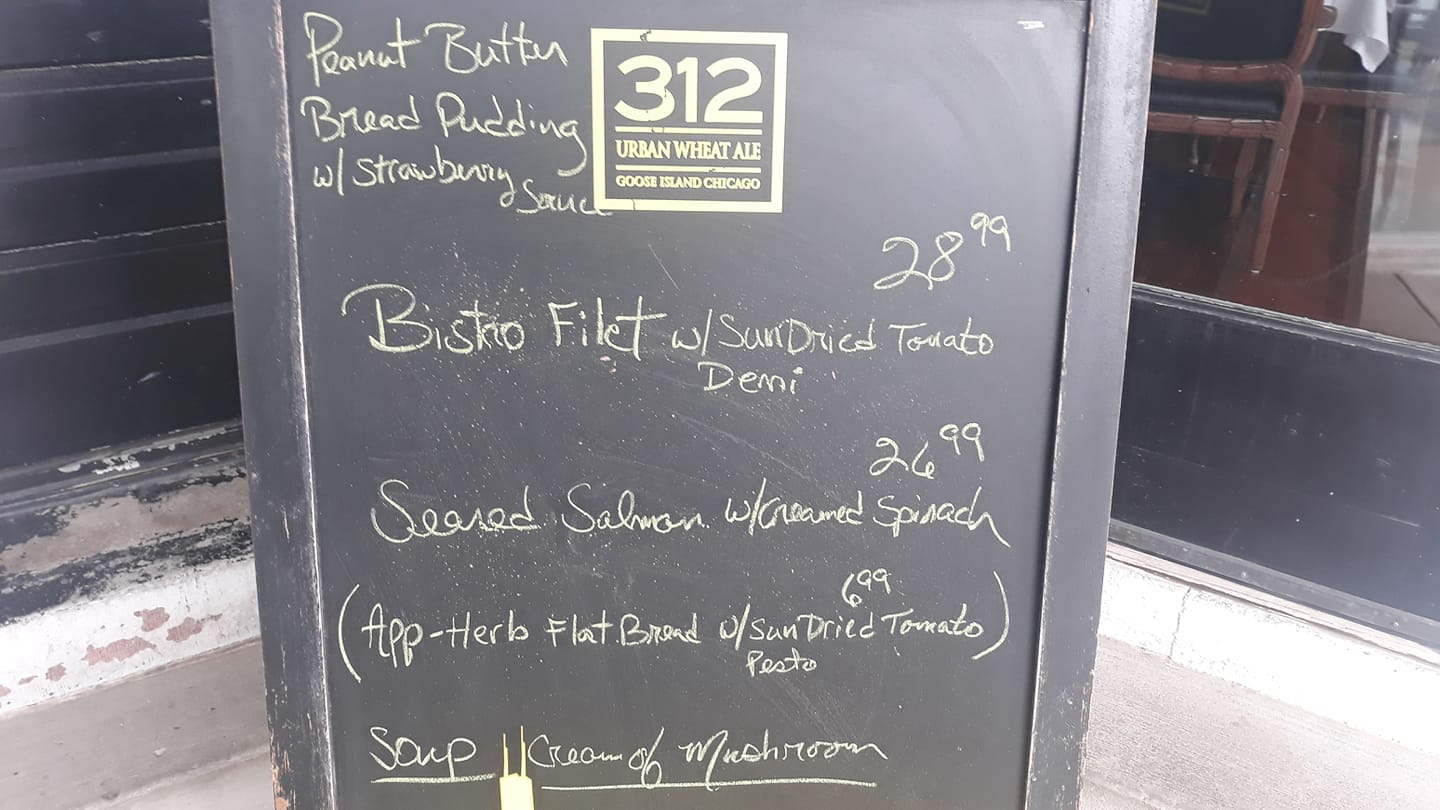 Peanut Butter
Bread Pudding
w/ Strawberry
Sauce
312
URBAN WHEAT ALE
GOOSE ISLAND CHICAGO
28 99
Bistro Filet w/ SunDried Tomato
Demi
26 99
Seared Salmon w/ Creamed Spinach
6 99
(App-Herb Flat Bread w/ SunDried Tomato)
Pesto
Soup Cream of Mushroom